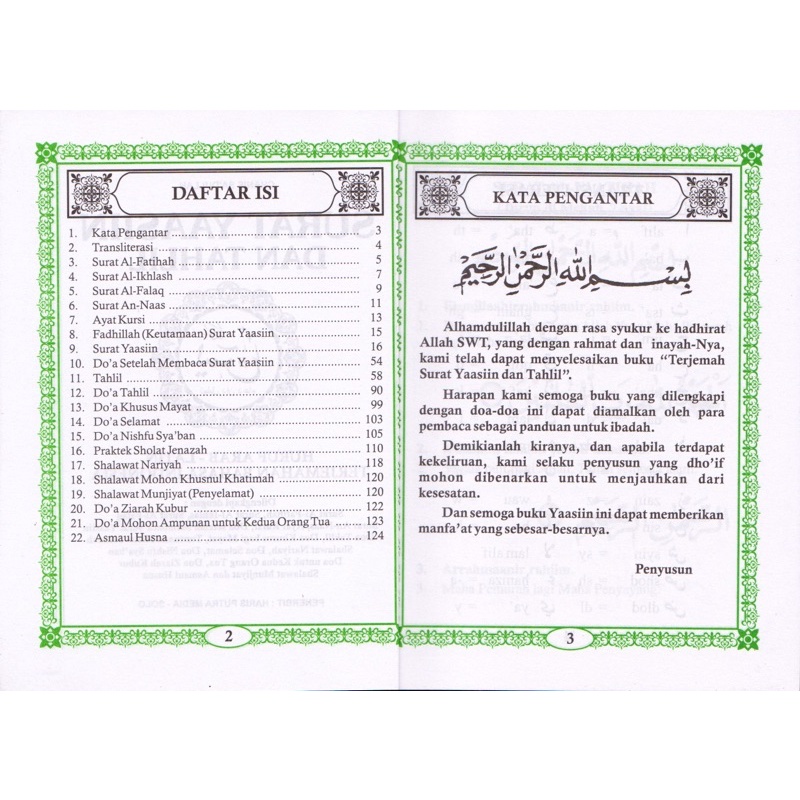 DAFTAR ISI
1. Kata Pengantar ........ 3
2. Transliterasi ........ 4
3. Surat Al-Fatihah ........ 5
4. Surat Al-Ikhlash ........ 7
5. Surat Al-Falaq ........ 9
6. Surat An-Naas ........ 11
7. Ayat Kursi ........ 13
8. Fadhillah (Keutamaan) Surat Yaasiin ........ 15
9. Surat Yaasiin ........ 16
10. Do'a Setelah Membaca Surat Yaasiin ........ 54
11. Tahlil ........ 58
12. Do'a Tahlil ........ 90
13. Do'a Khusus Mayat ........ 99
14. Do'a Selamat ........ 103
15. Do'a Nishfu Sya'ban ........ 105
16. Praktek Sholat Jenazah ........ 110
17. Shalawat Nariyah ........ 118
18. Shalawat Mohon Khusnul Khatimah ........ 120
19. Shalawat Munjiyat (Penyelamat) ........ 120
20. Do'a Ziarah Kubur ........ 122
21. Do'a Mohon Ampunan untuk Kedua Orang Tua ........ 123
22. Asmaul Husna ........ 124
2
KATA PENGANTAR
بِسْمِ اللهِ الرَّحْمٰنِ الرَّحِيْمِ
Alhamdulillah dengan rasa syukur ke hadhirat
Allah SWT, yang dengan rahmat dan inayah-Nya,
kami telah dapat menyelesaikan buku "Terjemah
Surat Yaasiin dan Tahlil".
Harapan kami semoga buku yang dilengkapi
dengan doa-doa ini dapat diamalkan oleh para
pembaca sebagai panduan untuk ibadah.
Demikianlah kiranya, dan apabila terdapat
kekeliruan, kami selaku penyusun yang dho'if
mohon dibenarkan untuk menjauhkan dari
kesesatan.
Dan semoga buku Yaasiin ini dapat memberikan
manfa'at yang sebesar-besarnya.
Penyusun
3